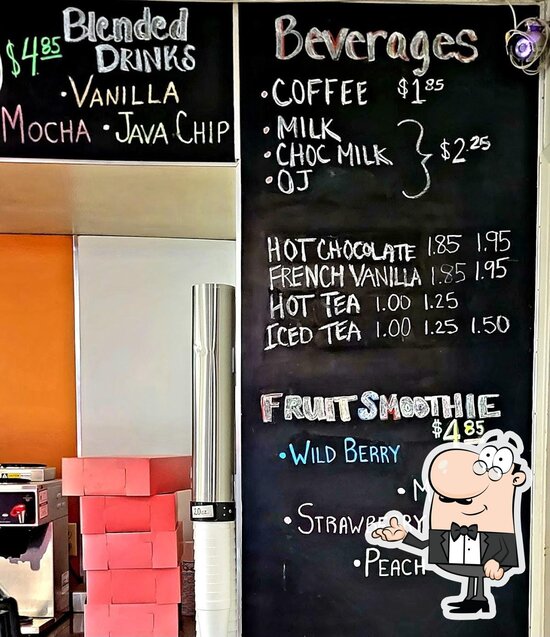 Blended
$4.85 DRINKS
• VANILLA
MOCHA • JAVA CHIP
Beverages
• COFFEE $1.85
• MILK
• CHOC MILK $2.25
• OJ
HOT CHOCOLATE 1.85 1.95
FRENCH VANILLA 1.85 1.95
HOT TEA 1.00 1.25
ICED TEA 1.00 1.25 1.50
FRUIT SMOOTHIE
$4.85
• WILD BERRY
• STRAWBERRY
• PEACH